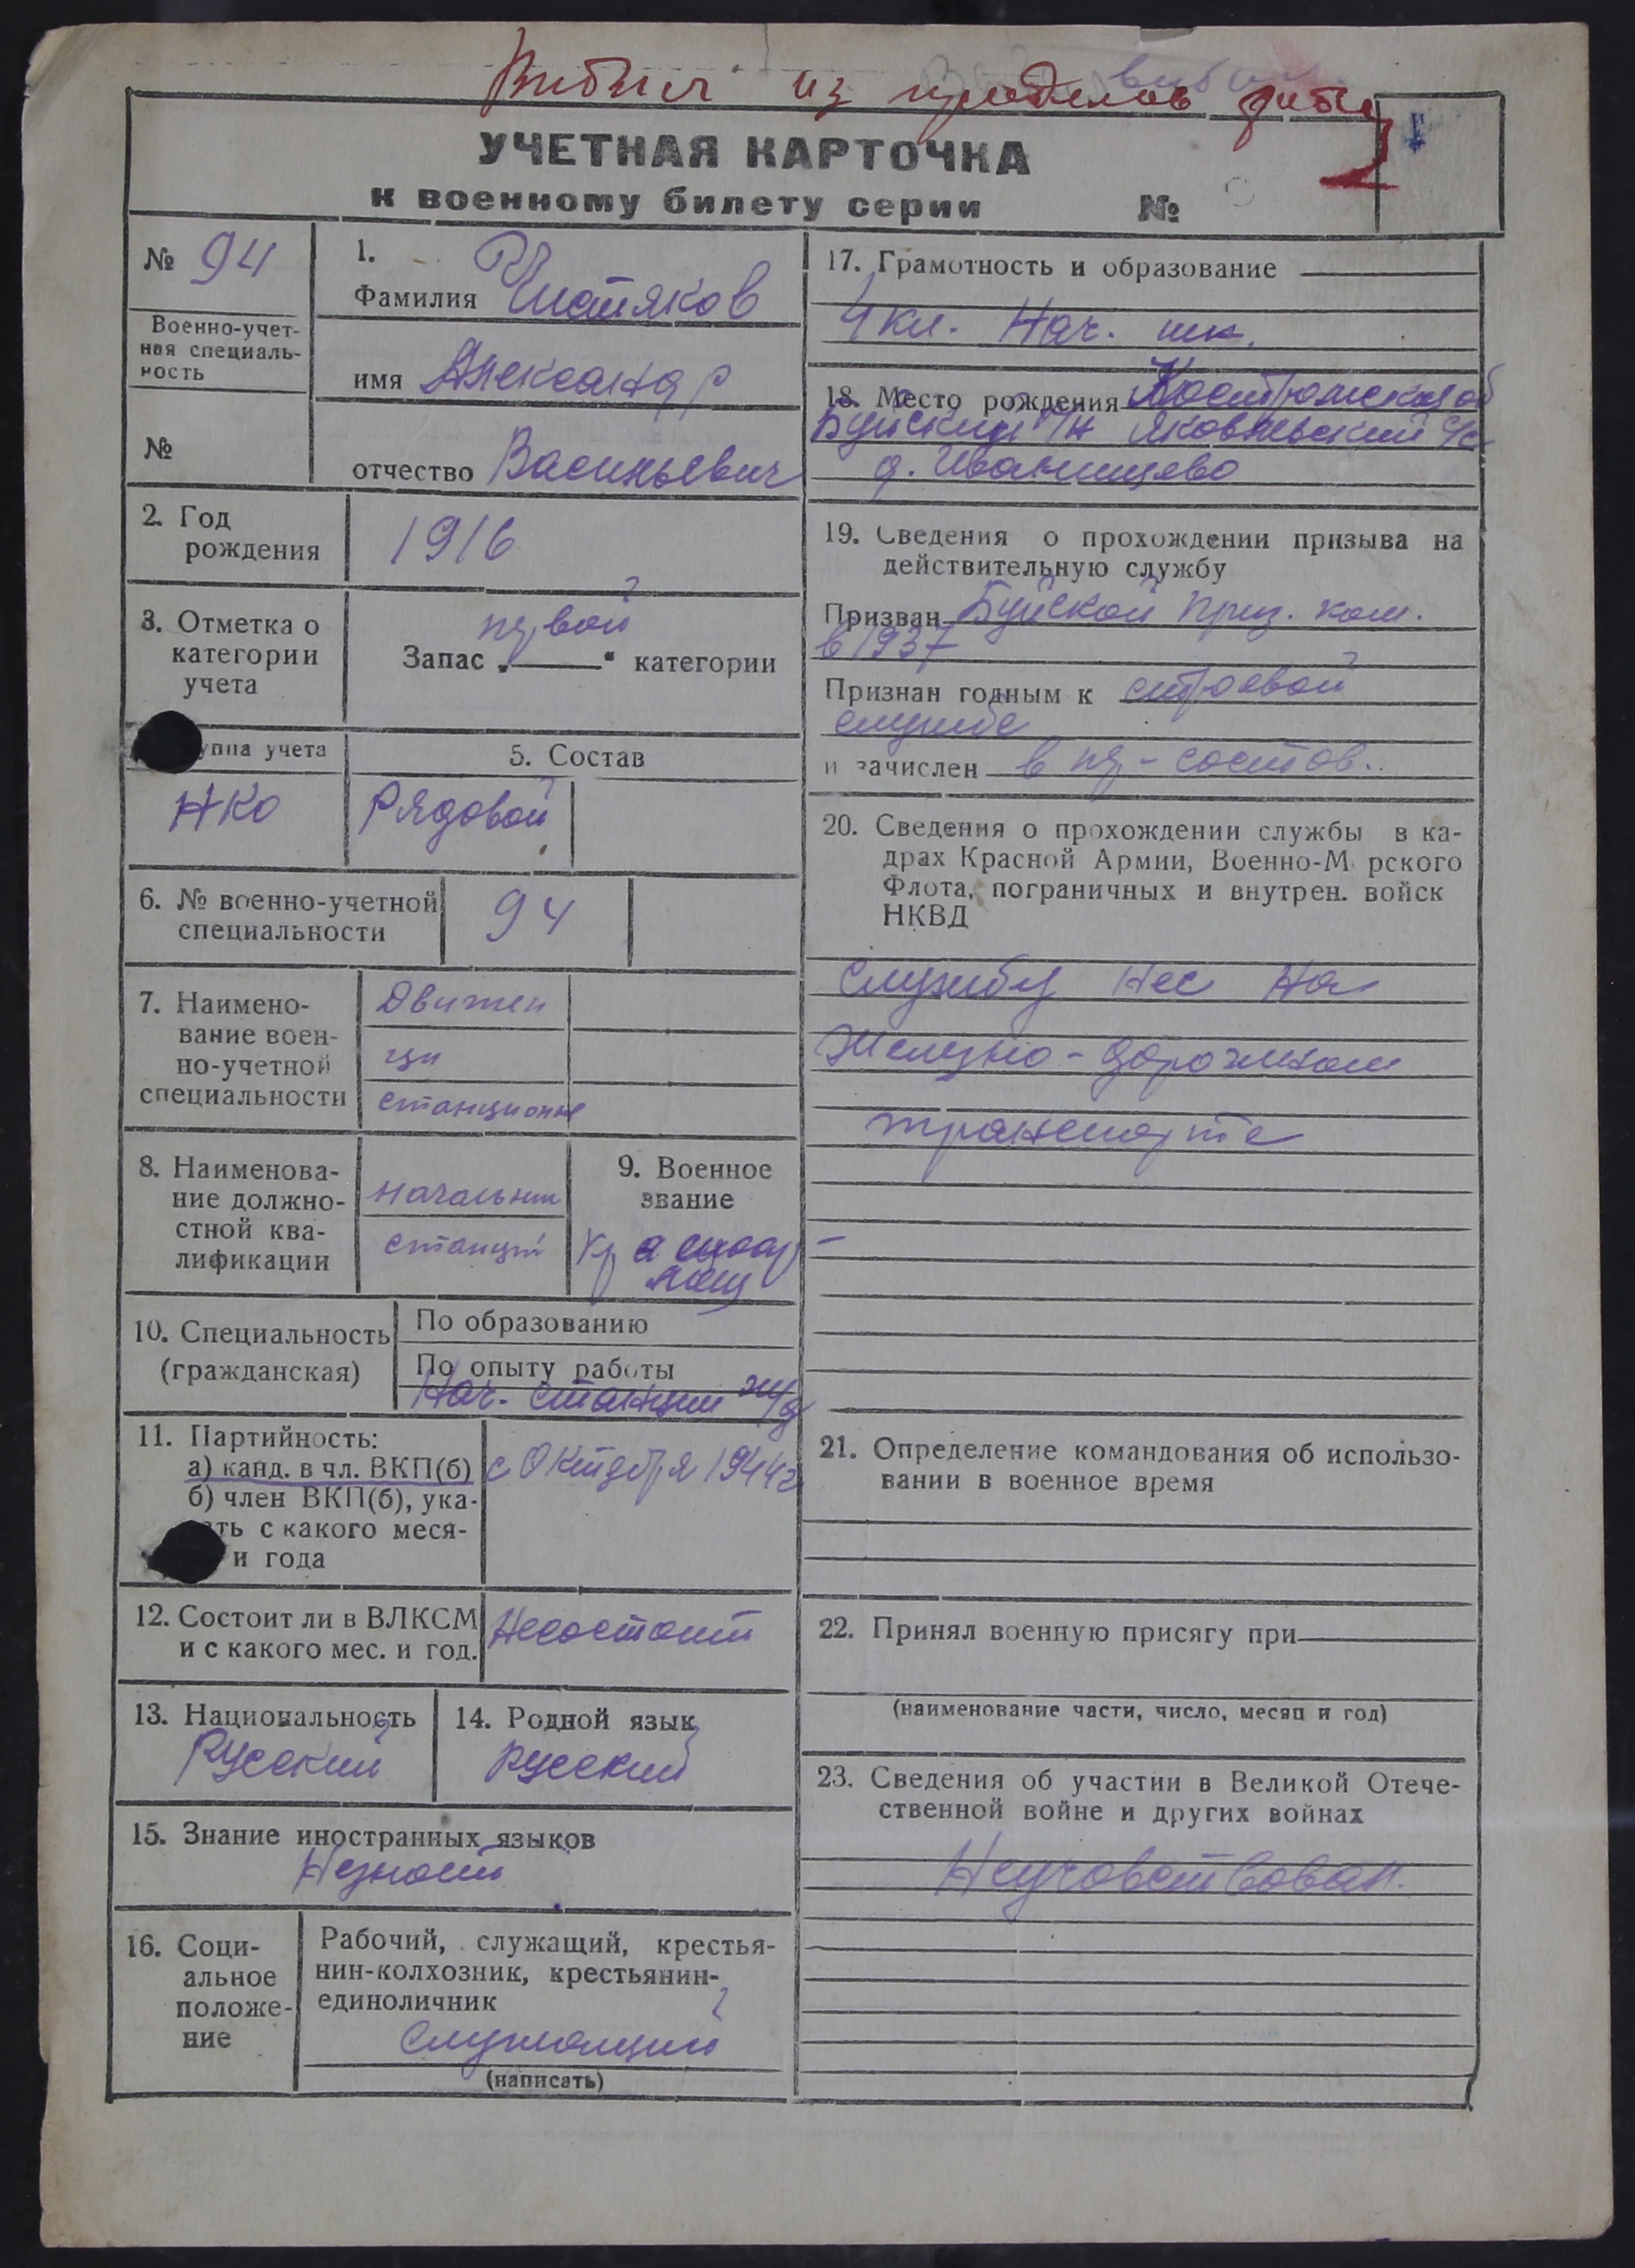 из пределов
УЧЕТНАЯ КАРТОЧКА
к военному билету серии №
№ 94
Военно-учет-
ная специаль-
ность
№
1.
Фамилия
имя Александр
отчество Васильевич
2. Год
рождения
1916
3. Отметка о
категории
учета
первой
Запас „ “ категории
уппа учета
НКО
5. Состав
Рядовой
6. № военно-учетной
специальности
94
7. Наимено-
вание воен-
но-учетной
специальности
Движен
цы
станционные
8. Наименова-
ние должно-
стной ква-
лификации
начальник
станций
9. Военное
звание
Красноар-
меец
10. Специальность
(гражданская)
По образованию
По опыту работы
Нач. станции ж/д
11. Партийность:
а) канд. в чл. ВКП(б)
б) член ВКП(б), ука-
ать с какого меся-
и года
с Октября 1944г
12. Состоит ли в ВЛКСМ
и с какого мес. и год.
Несостоит
13. Национальность
Русский
14. Родной язык
Русский
15. Знание иностранных языков
Незнает
16. Соци-
альное
положе-
ние
Рабочий, служащий, крестья-
нин-колхозник, крестьянин-
единоличник
служащий
(написать)
17. Грамотность и образование
4 кл. Нач. шк.
18. Место рождения Костромская об
Буйский р/н Яковлевский с/с
д. Иванищево
19. Сведения о прохождении призыва на
действительную службу
Призван Буйской приз. ком.
в 1937
Признан годным к строевой
службе
и зачислен в ряд-состов..
20. Сведения о прохождении службы в ка-
драх Красной Армии, Военно-М рского
Флота, пограничных и внутрен. войск
НКВД
Службу нес на
Железно-дорожном
транспорте
21. Определение командования об использо-
вании в военное время
22. Принял военную присягу при
(наименование части, число, месяц и год)
23. Сведения об участии в Великой Отече-
ственной войне и других войнах
Неучовствовал.